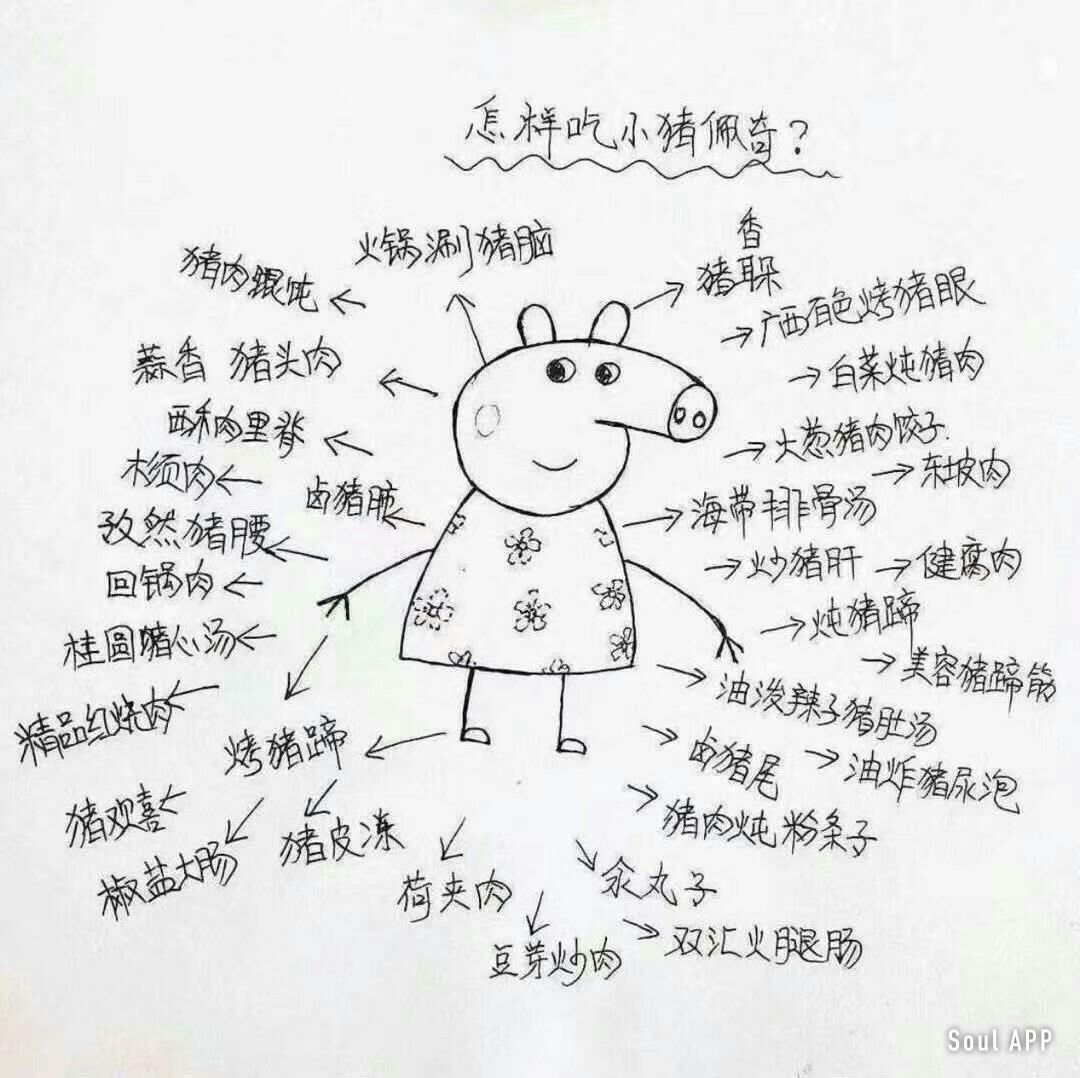 怎样吃小猪佩奇?
火锅涮猪脑
猪肉馄饨
蒜香 猪头肉
酥和肉里脊
木须肉
卤猪脏
孜然猪腰
回锅肉
桂圆猪心汤
精品红烧肉
烤猪蹄
猪欢喜
椒盐大肠
猪皮冻
荷夹肉
豆芽炒肉
香
猪耳朵
广西百色烤猪眼
白菜炖猪肉
大葱猪肉饺子
东坡肉
海带排骨汤
炒猪肝
健腐肉
炖猪蹄
美容猪蹄筋
油泼辣子猪肚汤
卤猪尾
油炸猪尿泡
猪肉炖粉条子
汆丸子
双汇火腿肠
Soul APP